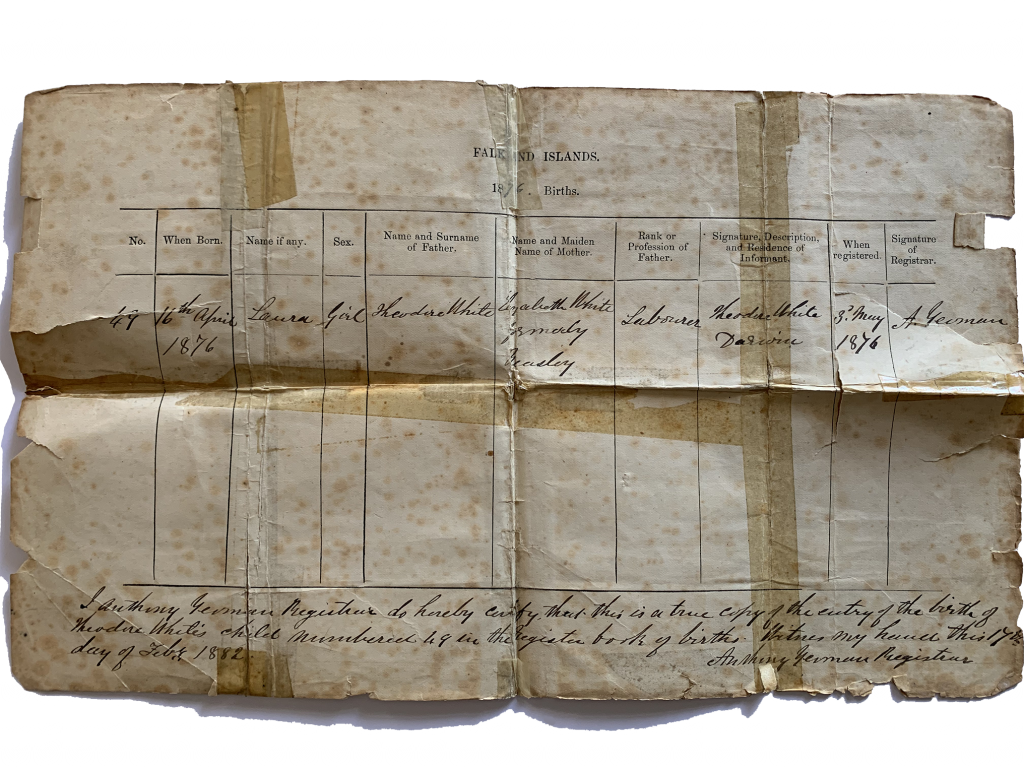 FALK ND ISLANDS.
1876. Births.
No. When Born. Name if any. Sex. Name and Surname of Father. Name and Maiden Name of Mother. Rank or Profession of Father. Signature, Description, and Residence of Informant. When registered. Signature of Registrar.
49 16th April Laura Girl Theodore White Elizabeth White Labourer Theodore White 3d. May A. Yeoman
1876 formerly Darwin 1876
I Anthony Yeoman Registrar do hereby certify that this is a true copy of the entry of the birth of
Theodore White's child numbered 49 in the register book of births. Witnes my hand this 17th
day of Feby. 1882.
Anthony Yeoman Registrar